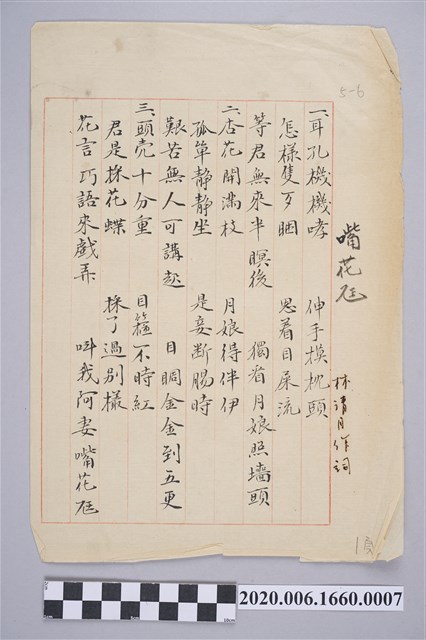 5-6
嘴花尫
林清月作詞
一、耳孔機機哮　伸手換枕頭
怎樣隻歹睏　思着目屎流
等君無來半暝後　獨看月娘照墻頭
二、杏花開滿枝　月娘得伴伊
孤单静静坐　是妾断腸時
艱苦無人可講起　目睭金金到五更
三、頭壳十分重　目箍不時紅
君是採花蝶　採了過別欉
花言巧語來戲弄　叫我阿妻嘴花尫
2020.006.1660.0007